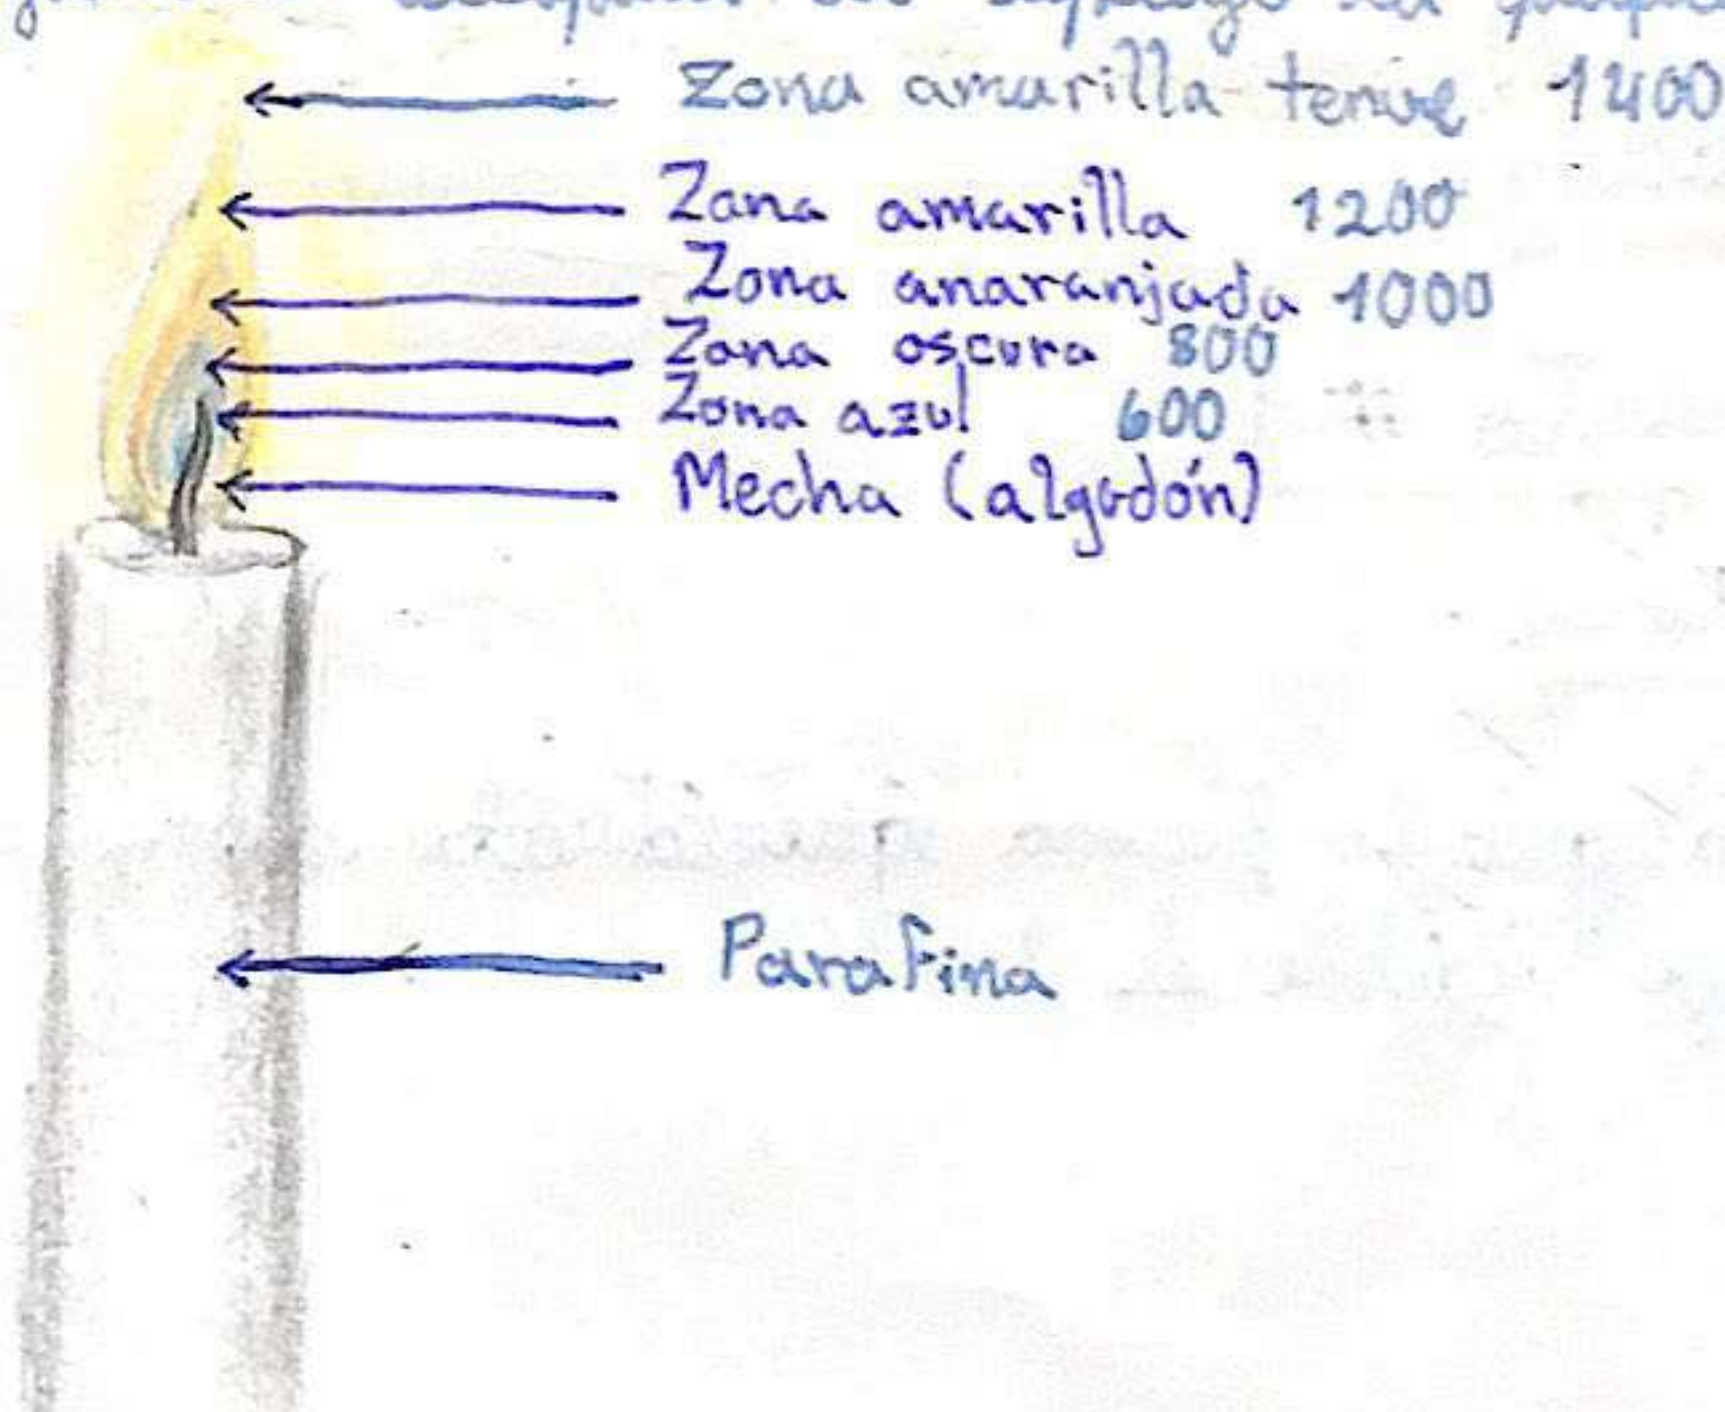 Zona amarilla tenue 1400
Zona amarilla 1200
Zona anaranjada 1000
Zona oscura 800
Zona azul 600
Mecha (algodón)
Parafina